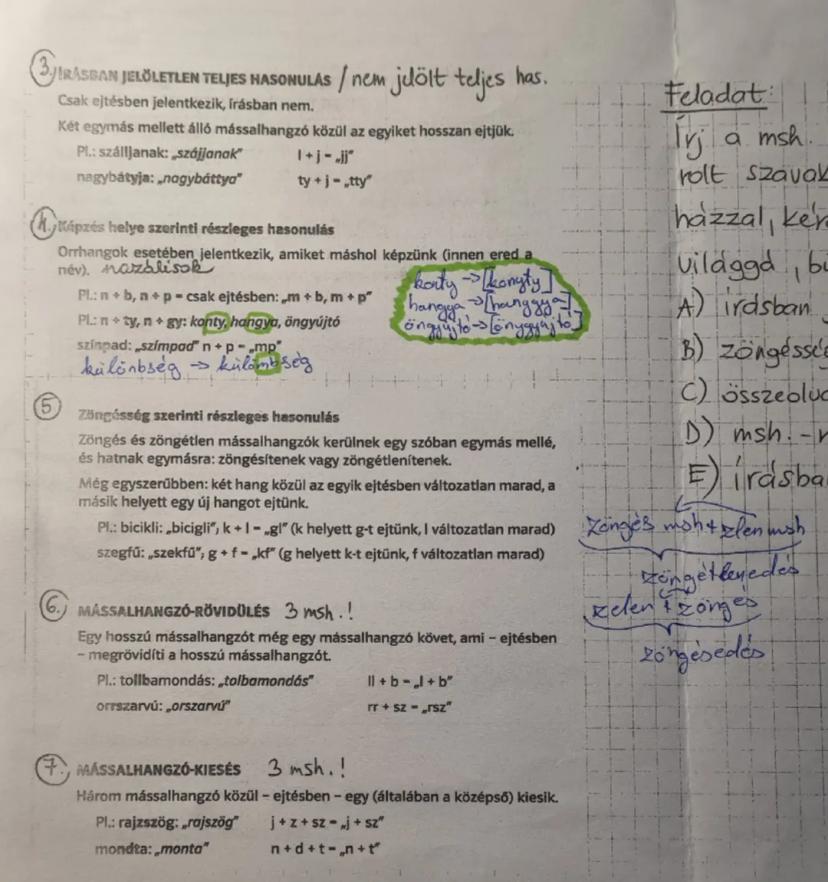 3. ÍRÁSBAN JELÖLETLEN TELJES HASONULÁS / nem jelölt teljes has.
Csak ejtésben jelentkezik, írásban nem.
Két egymás mellett álló mássalhangzó közül az egyiket hosszan ejtjük.
Pl.: szálljanak: „szájjanak” l + j – „jj”
nagybátyja: „nagybáttya” ty + j – „tty”
4. Képzés helye szerinti részleges hasonulás
Orrhangok esetében jelentkezik, amiket máshol képzünk (innen ered a
név). nazálisok
Pl.: n + b, n + p – csak ejtésben: „m + b, m + p”
Pl.: n + ty, n + gy: konty, hangya, öngyújtó
színpad: „színpad” n + p – „mp”
különbség → külömbség
konty → [konyty]
hangya → [hanygya]
öngyújtó → [önygyújtó]
5
Zöngésség szerinti részleges hasonulás
Zöngés és zöngétlen mássalhangzók kerülnek egy szóban egymás mellé,
és hatnak egymásra: zöngésítenek vagy zöngétlenítenek.
Még egyszerűbben: két hang közül az egyik ejtésben változatlan marad, a
másik helyett egy új hangot ejtünk.
Pl.: bicikli: „bicigli”, k + l – „gl” (k helyett g-t ejtünk, l változatlan marad)
szegfű: „szekfű”, g + f – „kf” (g helyett k-t ejtünk, f változatlan marad)
6. MÁSSALHANGZÓ-RÖVIDÜLÉS 3 msh.!
Egy hosszú mássalhangzót még egy mássalhangzó követ, ami – ejtésben
– megrövidíti a hosszú mássalhangzót.
Pl.: tollbamondás: „tolbamondás” ll + b – „l + b”
orrszarvú: „orszarvú” rr + sz – „rsz”
7. MÁSSALHANGZÓ-KIESÉS 3 msh.!
Három mássalhangzó közül – ejtésben – egy (általában a középső) kiesik.
Pl.: rajzszög: „rajszög” j + z + sz – „j + sz”
mondta: „monta” n + d + t – „n + t”
Feladat:
Írj a msh.
rolt szavak
házzal, kér
világgá, bu
A) írásban
B) zöngéssé
C) összeolv
D) msh. - r
E) írásba
zöngés msh + zlen msh
zöngétlenedés
zelen + zöngés
zöngésedés